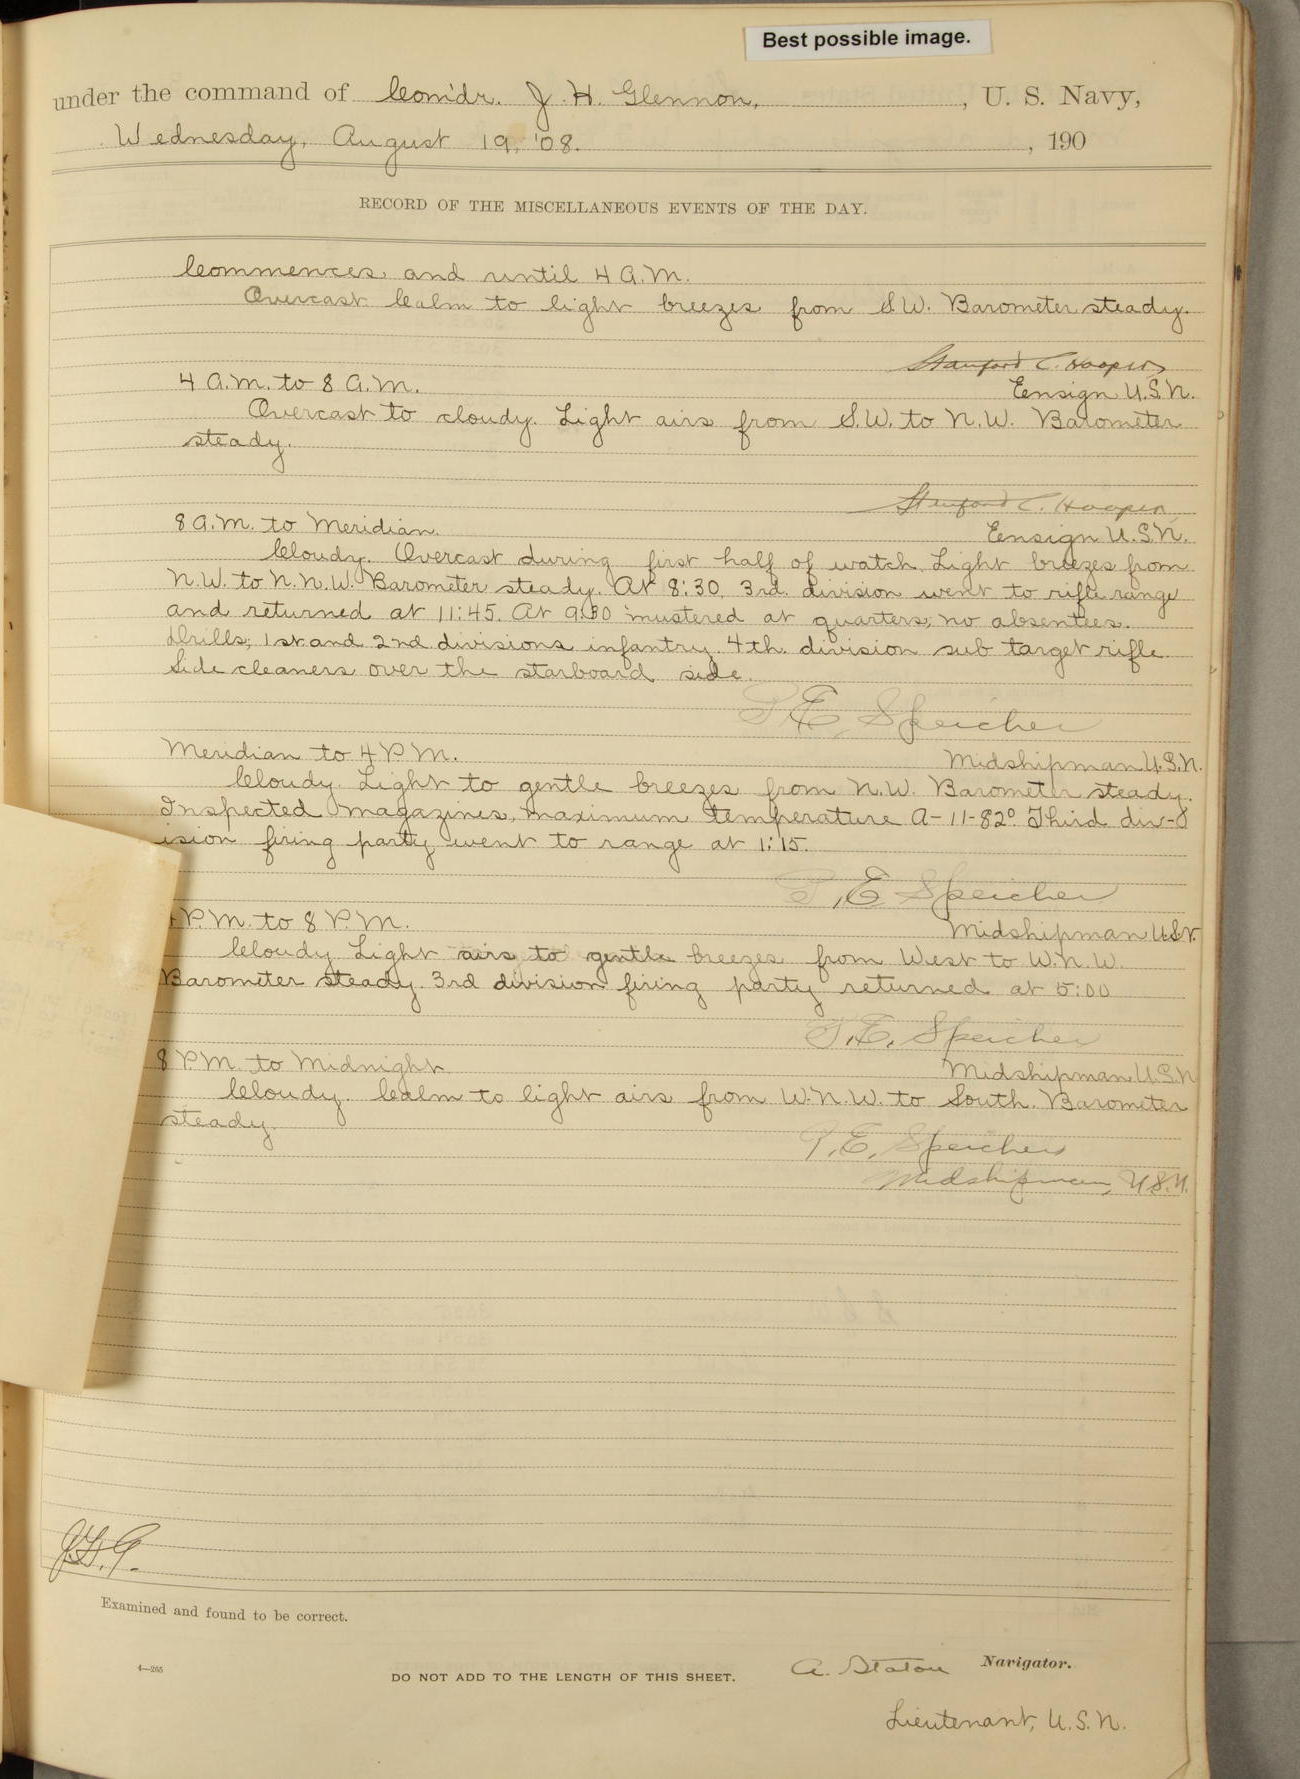 Best possible image.
under the command of Com'dr. J. H. Glennon, , U. S. Navy,
Wednesday, August 19, '08. , 190
RECORD OF THE MISCELLANEOUS EVENTS OF THE DAY.
Commences and until 4 A.M.
Overcast. Calm to light breezes from S.W. Barometer steady.
Stanford C. Hooper,
4 A.M. to 8 A.M.
Ensign U.S.N.
Overcast to cloudy. Light airs from S.W. to N.W. Barometer
steady.
Stanford C. Hooper,
8 A.M. to Meridian.
Ensign U.S.N.
Cloudy. Overcast during first half of watch. Light breezes from
N.W. to N.N.W. Barometer steady. At 8:30, 3rd. division went to rifle range
and returned at 11:45. At 9:30 mustered at quarters; no absentees.
Drills; 1st and 2nd divisions infantry. 4th. division sub target rifle.
Side cleaners over the starboard side.
T. E. Speicher
Meridian to 4 P.M.
Midshipman U.S.N.
Cloudy. Light to gentle breezes from N.W. Barometer steady.
Inspected magazines, maximum temperature A-11-82°. Third div-
ision firing party went to range at 1:15.
T. E. Speicher
4 P.M. to 8 P.M.
Midshipman U.S.N.
Cloudy. Light airs to gentle breezes from West to W.N.W.
Barometer steady. 3rd division firing party returned at 5:00
T. E. Speicher
8 P.M. to Midnight
Midshipman U.S.N
Cloudy. Calm to light airs from W.N.W. to South. Barometer
steady.
T. E. Speicher
Midshipman, U.S.N.
J.H.G.
Examined and found to be correct.
4—265
DO NOT ADD TO THE LENGTH OF THIS SHEET.
A. Staton Navigator.
Lieutenant, U.S.N.